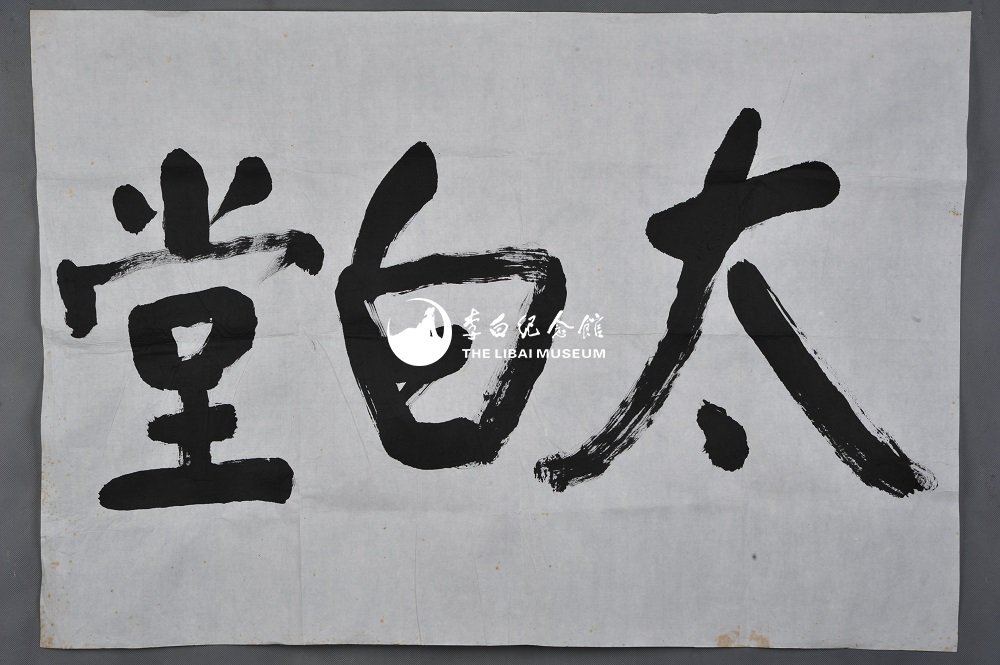 太白堂
李白纪念馆
THE LIBAI MUSEUM